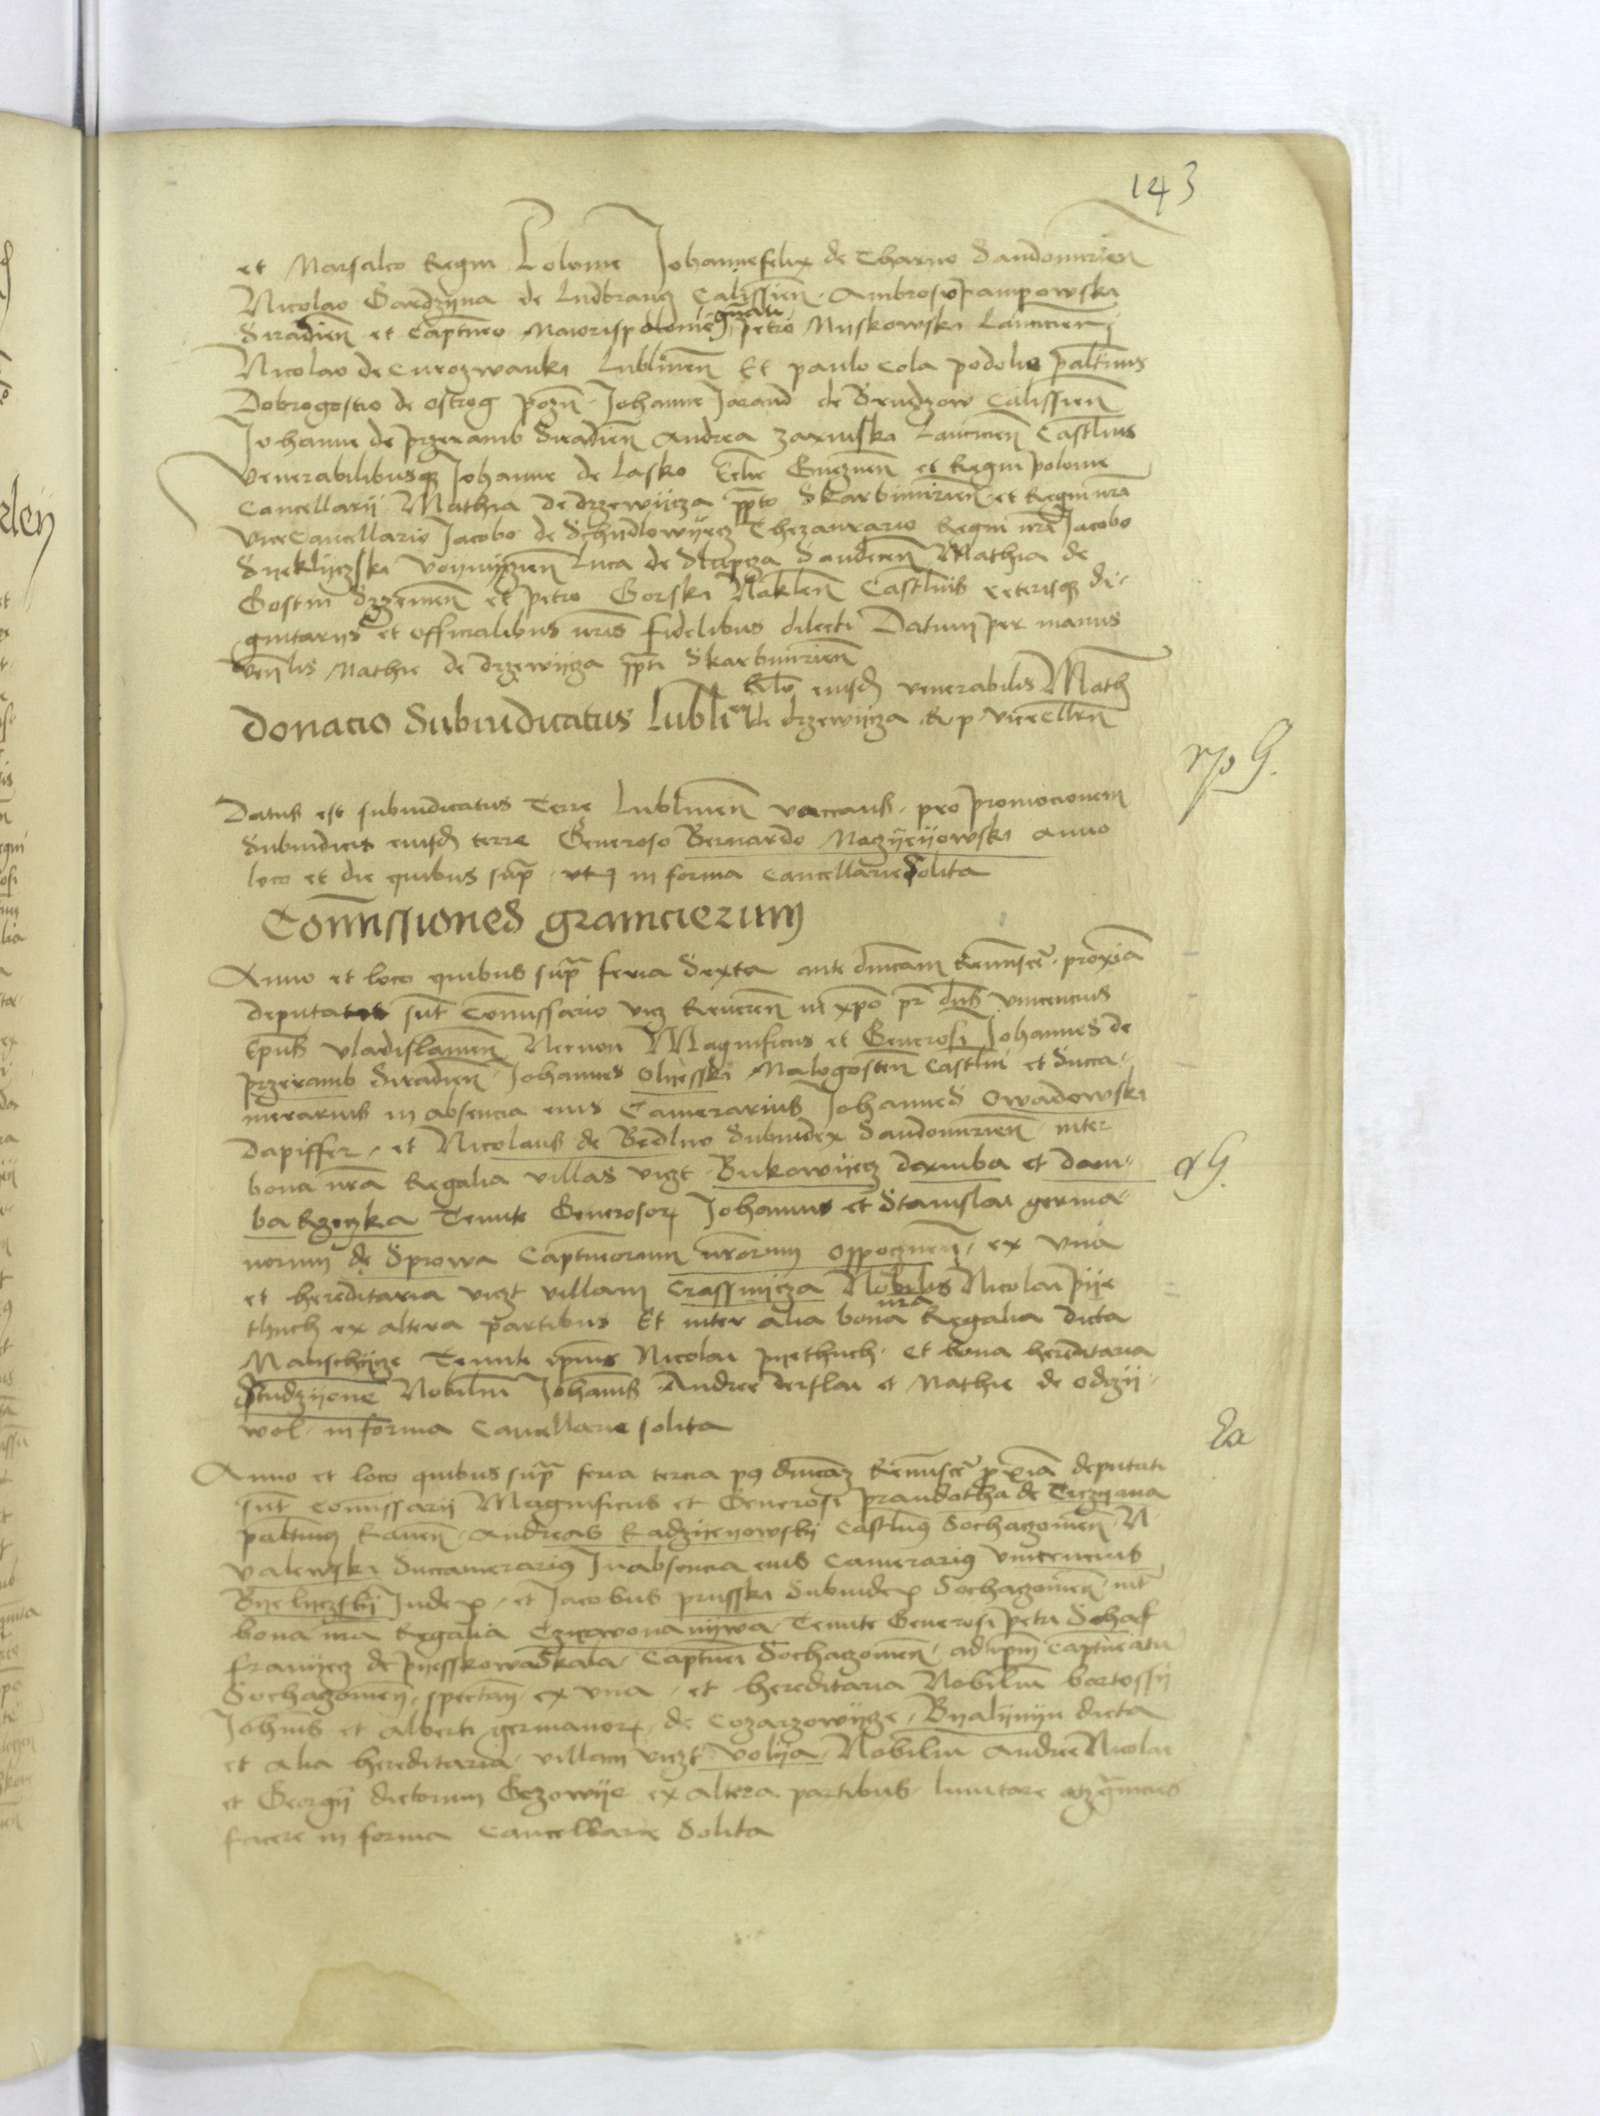 143
et Marsalco Regni Polonie Johannefelix de Tharno Sandomirien̄
Nicolao Gardzyna de Ludbrancz Calissien̄ Ambrosio Pampowski
Siradien̄ et Capt̄neo Maiorispolonie gn̄ali petro Myskowski Lancicien̄
Nicolao de Curozwanki Lublinen̄ Et paulo Cola podolie palt̄inis
Dobrogostio de ostrog pozn̄ Johanne Jarand de Brudzow Calissien̄
Johanne de przeramb Siradien̄ Andrea zaxinski Lancicien̄ Castl̄nis
Venerabilibusq; Johanne de Lasko Ecl̄ie Gnieznen̄ et Regni polonie
Cancellarij Mathia de drzewijcza pp̄to Skarbimirien̄ et Regni nr̄i
ViceCancellario Jacobo de Schidlowyecz Thezaurario Regni nr̄i Jacobo
Syeklyczski Voynyczien̄ Luca de Slupcza Sandecen̄ Mathia de
Gostin Srzemen̄ et petro Gorski Naklen̄ Castl̄nis ceterisq; di-
gnitarijs et officialibus nr̄is fidelibus dilecti Datum per manus
Ven̄lis Mathie de drzewijcza pp̄ti Skarbimirien̄
Rl̄o eiusd̄ venerabilis Math̄
Donacio Subiudicatus Lublien̄ de drzewijcza R p vicecll̄rn̄
rp G.
Datus est subiudicatus Terre Lublinen̄ vaccans pro promocionem
Subiudicis eiusd̄ terre Generoso Bernardo Maczyeyowski anno
loco et die quibus sup̄ut in forma cancellarie Solita
Com̄issiones gramicierum
Anno et loco quibus sup̄ feria Sexta ante dn̄icam Remisce̅ proxiā
deputati sūt Comissario viz Reueren̄ in xp̄o pr̄ dn̄s Vincencius
Ep̄us Vladislauien̄ Necnon Magnificus et Generosi Johannes de
przeramb Siradien̄ Johannes Olyesski Malogosten̄ Castl̄ni et Succa-
merarius in absencia eius Camerarius Johannes Owadowski
dapiffer et Nicolaus de Bedlno Subiudex Sandomirien̄ inter
bona nr̄a Regalia villas vizt Bukowyecz dexinba et dam-
ba Rzeczka Tenute Generosor̄ Johannis et Stanislai germa-
norum de Sprowa Capt̄neorum nr̄orum oppocznen̄ ex Vna
et hereditaria vizt villam Crassnijcza Nobilis Nicolai pye
thuch ex altera partibus Et inter alia bona nr̄a Regalia dicta
Malischycze Tenute ip̄ius Nicolai pyethuch et bona hereditaria
Studzijone Nobiliū Johan̄is Andree derslai et Mathie de odrzij-
wol in forma Cancellarie solita
Anno et loco quibus sup̄ feria tercia p9 dn̄icaz Remisce̅ p̄xiā deputati
sūt comissarij Magnificus et Generosi prandotha de Trczyana
palt̄ing Rauen̄ Andreas Radziyeyowskij Castl̄nꝰ Sochaczouien̄ N
Valewski Succamerariꝰ Inabsencia eius Camerariꝰ vincencius
Byelyczskij Iudex et Jacobus prusski Subiudex Sochaczouien̄ int̄
bona nr̄a Regalia Czyrwonanywa Tenute Generosi petri Schaf
franyecz de pyesskowaSkala Capt̄nei Sochaczouien̄ ad ip̄m capt̄neatū
Sochaczouien̄ spectan̄ ex vna et hereditaria Nobiliū bartossij
Joh̄nis et Alberti germanor̄ de Cozarzowijcze Byalijnijn dicta
et alia hereditaria villam vizt Volya Nobiliū Andree Nicolai
et Georgij dictorum Gezowije ex altera partibus limitare atq; g̅nicies
facere in forma Cancellarie Solita